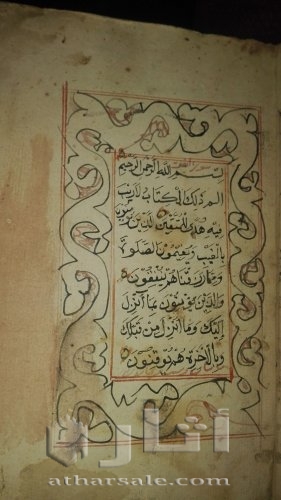 بسم الله الرحمن الرحيم
الم ذلك الكتاب لا ريب
فيه هدى للمتقين الذين يؤمنون
بالغيب ويقيمون الصلوة
ومما رزقناهم ينفقون
والذين يؤمنون بما أنزل
إليك وما أنزل من قبلك
وبالآخرة هم يوقنون
أثارك
atharsale.com